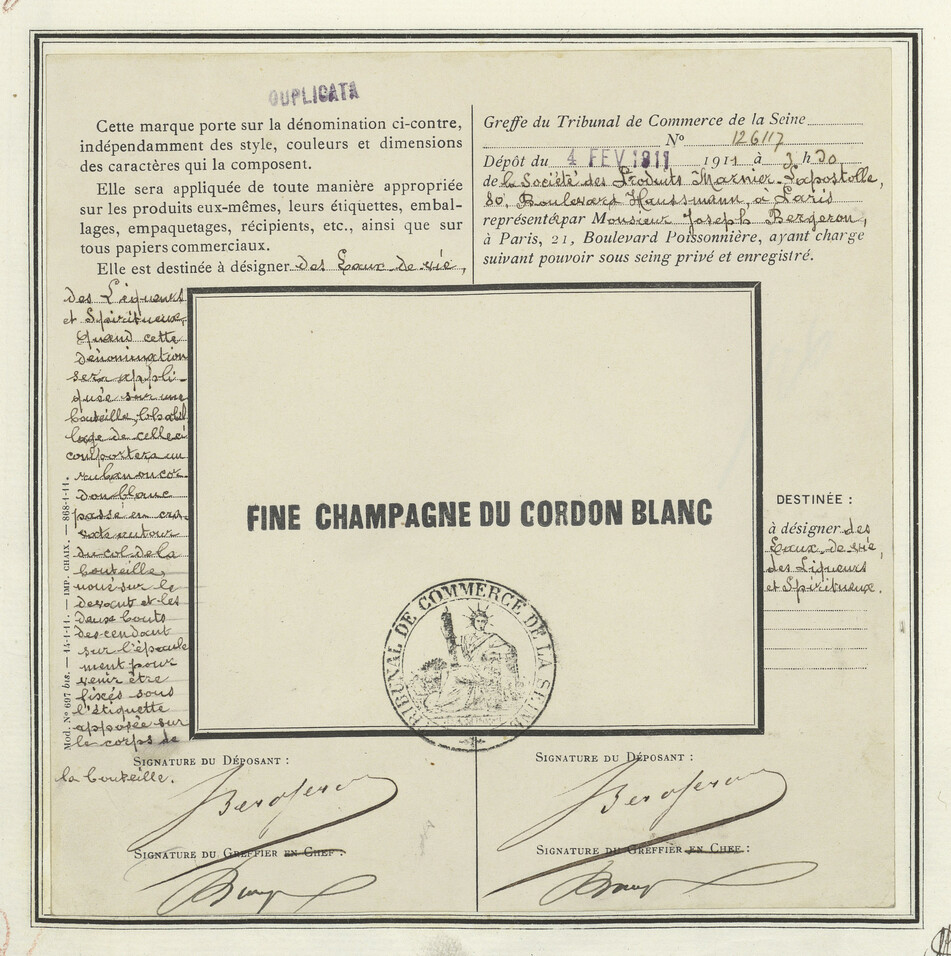 DUPLICATA
Cette marque porte sur la dénomination ci-contre,
indépendamment des style, couleurs et dimensions
des caractères qui la composent.
Elle sera appliquée de toute manière appropriée
sur les produits eux-mêmes, leurs étiquettes, embal-
lages, empaquetages, récipients, etc., ainsi que sur
tous papiers commerciaux.
Elle est destinée à désigner des Eaux de vie,
des Liqueurs
et Spiritueux.
Quand cette
dénomination
sera appli-
quée sur une
bouteille, l'habil
lage de celle ci
comportera un
ruban ou cor-
don blanc
passé en cra-
vate autour
du col de la
bouteille,
noué sur le
devant et les
deux bouts
descendant
sur l'épaule
ment pour
venir être
fixés sous
l'étiquette
apposée sur
le corps de
la bouteille.
Mod. N° 697 bis. — 14-1-11. — IMP. CHAIX. — 868-1-11.
Greffe du Tribunal de Commerce de la Seine
N° 126117
Dépôt du 4 FEV 1911 1911 à 3 h 30
de la Société des Produits Marnier-Lapostolle,
80, Boulevard Haussmann, à Paris
représentée par Monsieur Joseph Bergeron,
à Paris, 21, Boulevard Poissonnière, ayant charge
suivant pouvoir sous seing privé et enregistré.
FINE CHAMPAGNE DU CORDON BLANC
TRIBUNAL DE COMMERCE DE LA SEINE
DESTINÉE :
à désigner des
Eaux de vie,
des Liqueurs
et Spiritueux.
SIGNATURE DU DÉPOSANT :
Bergeron
SIGNATURE DU GREFFIER EN CHEF :
SIGNATURE DU DÉPOSANT :
Bergeron
SIGNATURE DU GREFFIER EN CHEF :